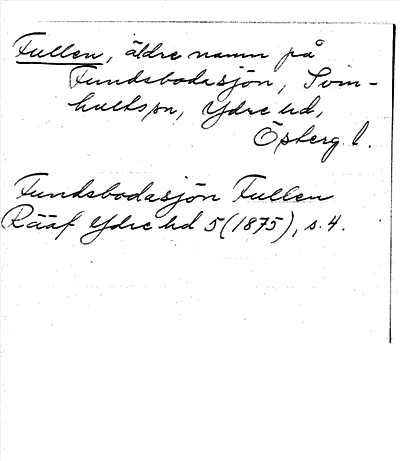 Fullen, äldre namn på
Fundsbodasjön, Svin-
hults sn, Ydre hd,
Östergl.
Fundsbodasjön Fullen
Rääf Ydre hd 5 (1875), s. 4.